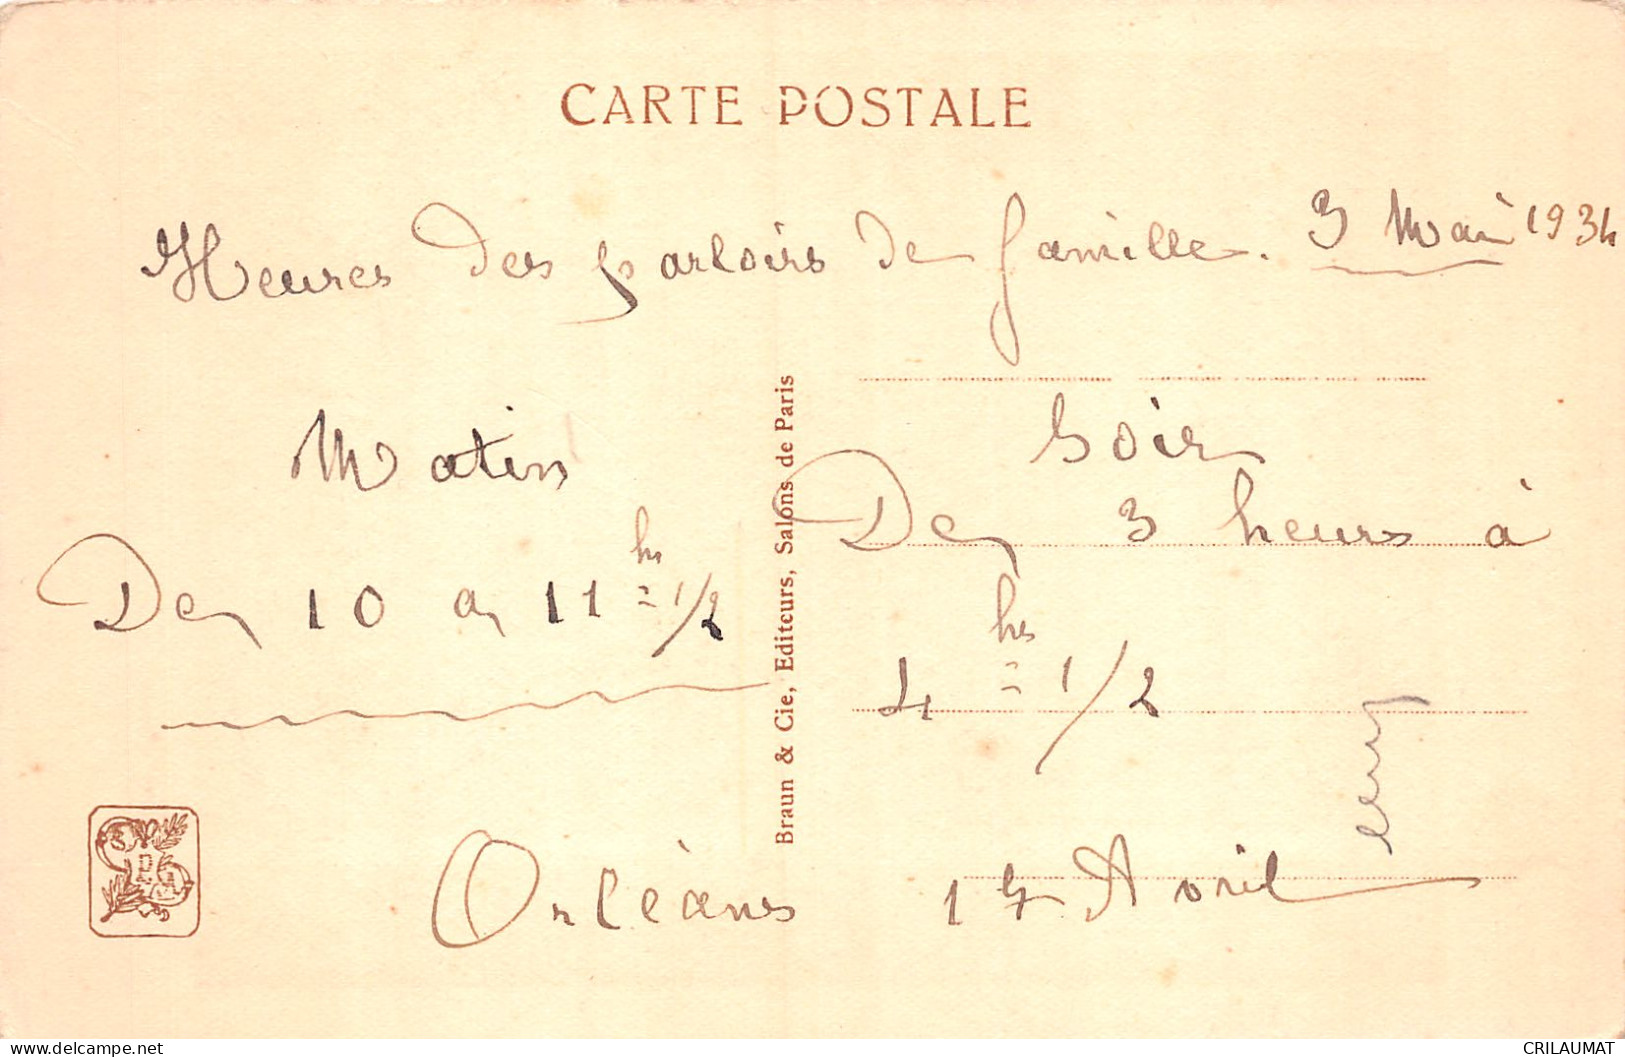 CARTE POSTALE
Heures des parloirs de famille. 3 Mai 1934
Matin
De 10 a 11 hs 1/2
Soir
De 3 heurs à
4 hs 1/2
Orléans 17 Avril
Braun & Cie, Editeurs, Salons de Paris
www.delcampe.net
CRILAUMAT